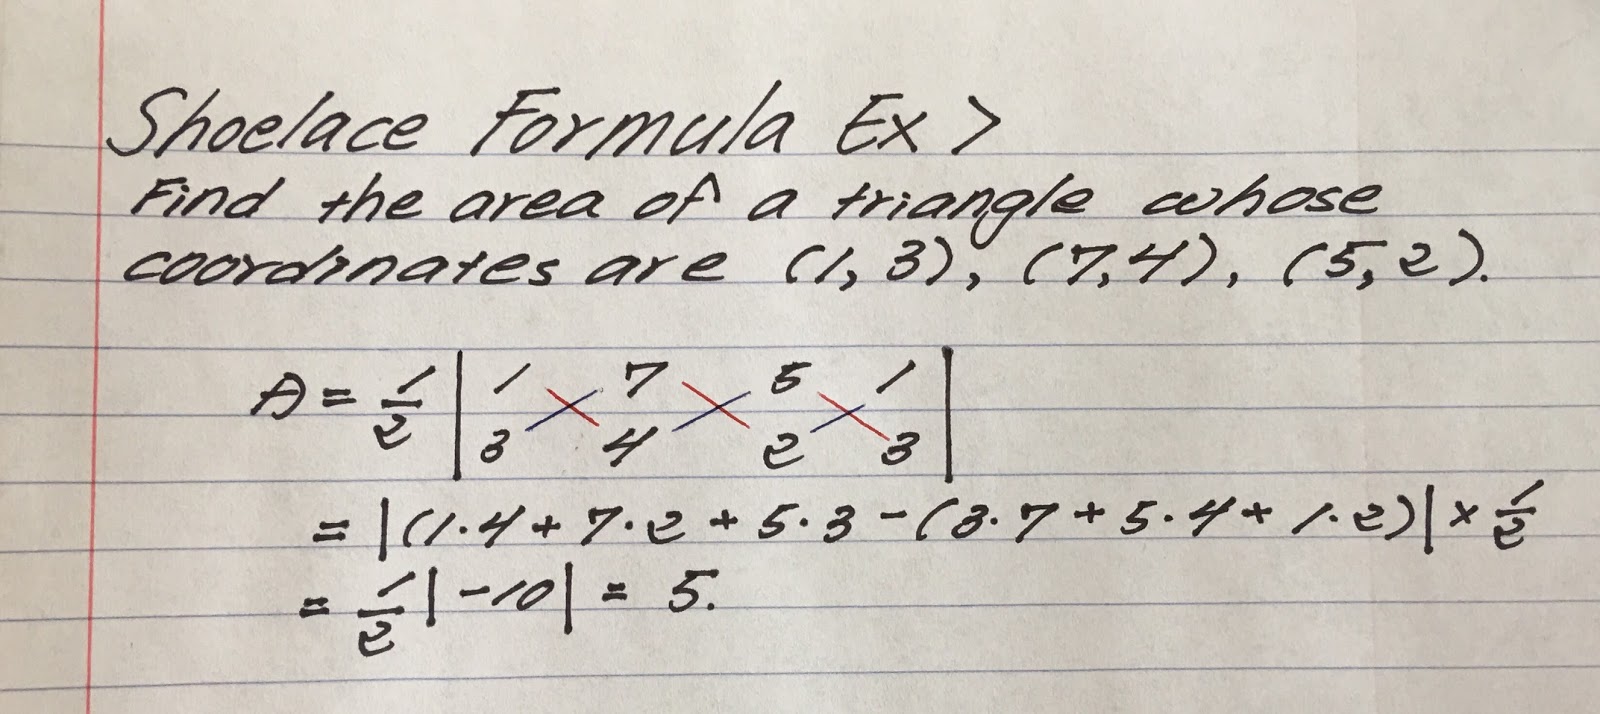 Shoelace Formula Ex >
Find the area of a triangle whose
coordinates are (1, 3), (7,4), (5, 2).
A = 1/2 | 1 7 5 1
3 4 2 3 |
= |(1·4 + 7·2 + 5·3 - (3·7 + 5·4 + 1·2)| × 1/2
= 1/2 |-10| = 5.